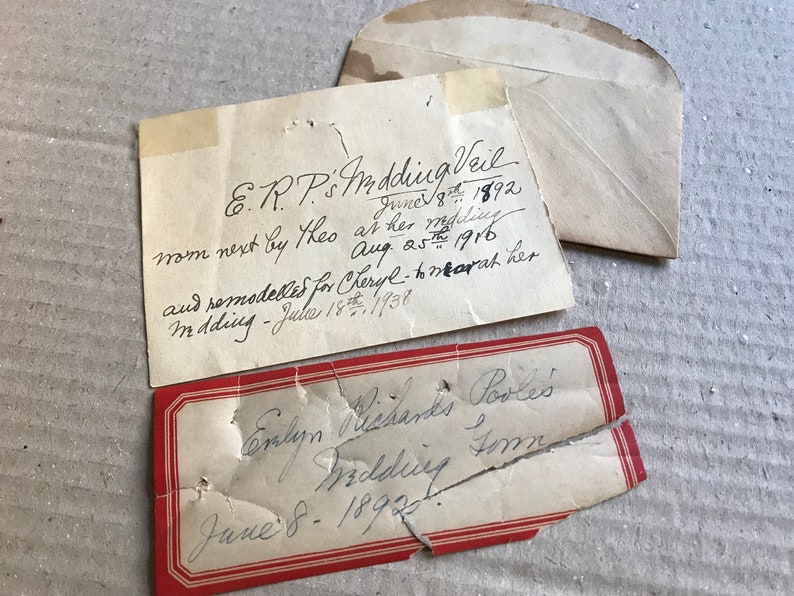 E. R. P.'s Wedding Veil
June 8th 1892
worn next by Theo at her wedding
Aug 25th 1916
and remodelled for Cheryl to wear at her
Wedding - June 18th, 1938
Evelyn Richards Poole's
Wedding Gown
June 8 - 1892.